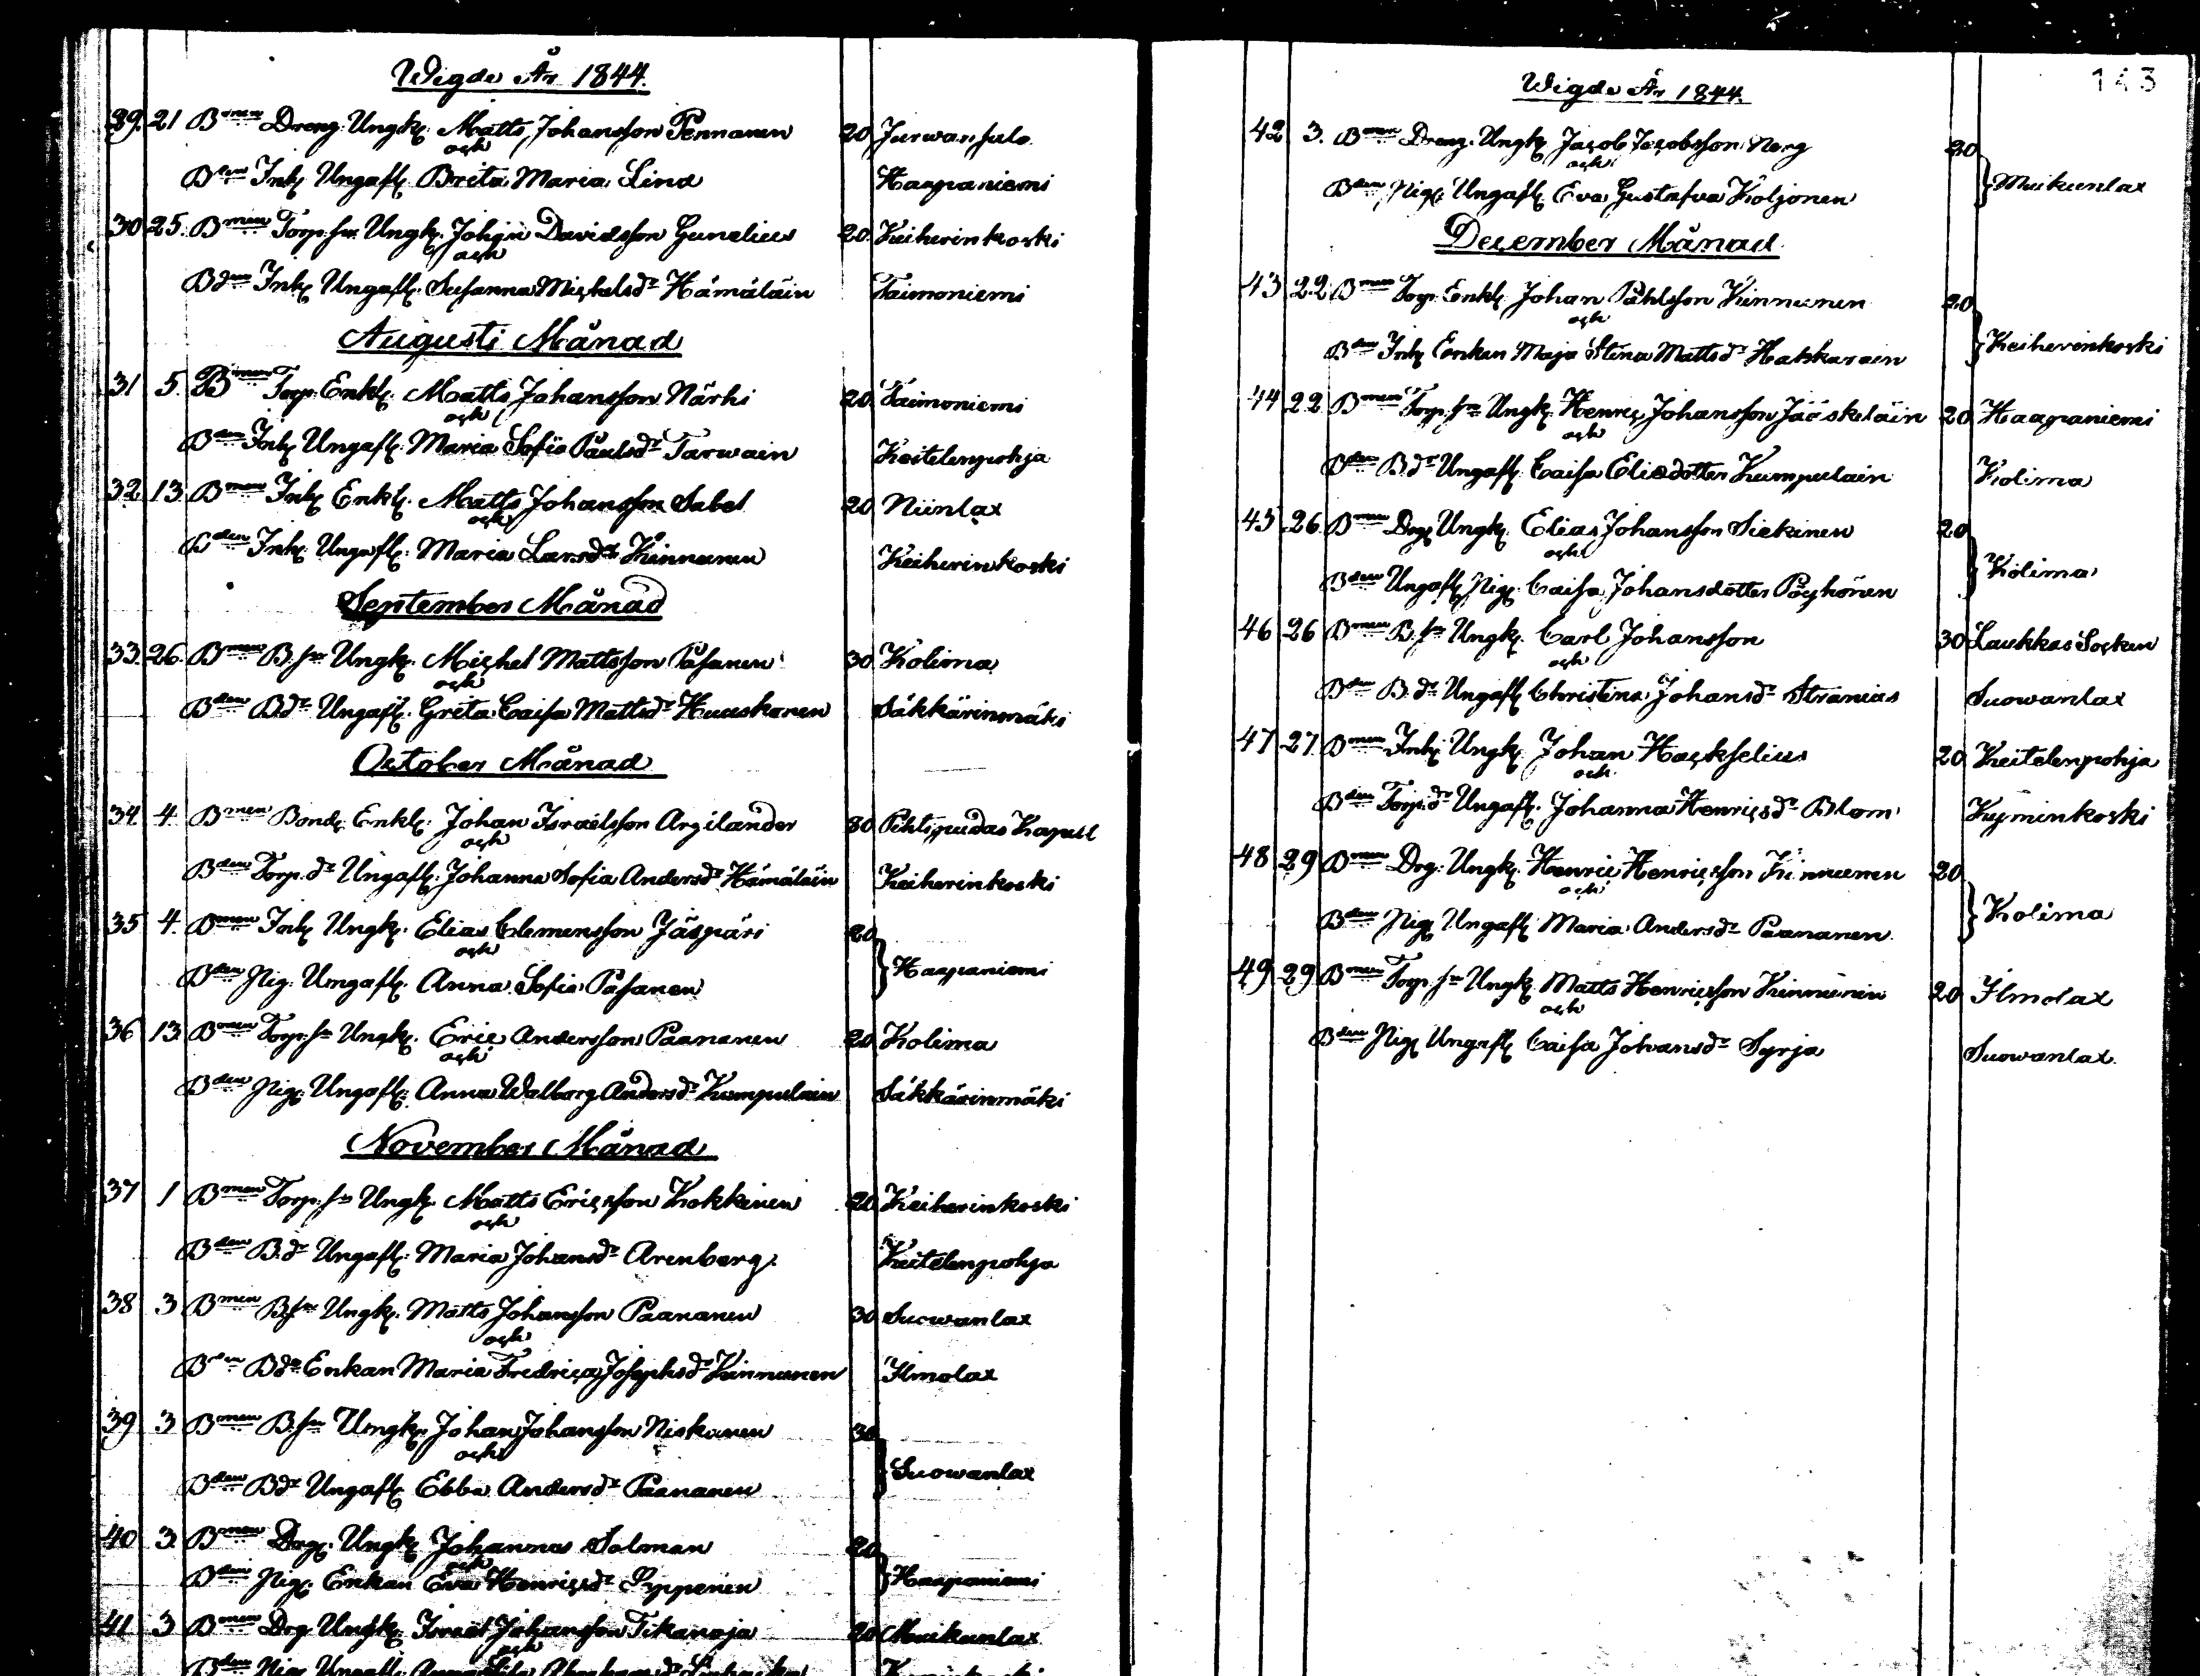 Wigde År 1844.
29. 21 Bmen Dreng. Ungk. Matts Johansson Pennanen 20 Jurwansalo
och
Bden Inh. Ungafl. Brita Maria Lind Haapaniemi
30 25. Bmen Torp. sn Ungk. Johan Davidsson Gunelius 20. Keiherinkoski
och
Bden Inh. Ungafl. Susanna Michelsdr Hämäläin Taimoniemi
Augusti Månad
31 5. Bmen Torp. Enkl. Matts Johansson Närhi 20. Taimoniemi
och
Bden Inh. Ungafl. Maria Sofia Paulsdr Tarwain Keitelenpohja
32 13. Bmen Inh. Enkl. Matts Johansson Sabel 20 Niinlax
och
Bden Inh. Ungafl. Maria Larsdr Kinnunen Keiherinkoski
September Månad
33. 26. Bmen B. sn Ungk. Michel Mattsson Pasanen 30. Kolima
och
Bden Bdr Ungafl. Greta Caisa Mattsdr Huuskonen Säkkärinmäki
October Månad
34. 4. Bmen Bond. Enkl. Johan Israelsson Argilander 30 Pihtipudas Kapell
och
Bden Torp. dr Ungafl. Johanna Sofia Andersdr Hämäläin Keiherinkoski
35 4. Bmen Inh. Ungk. Elias Clemensson Jäspäri 20
och
Haapaniemi
Bden Pig. Ungafl. Anna Sofia Pasanen
36 13. Bmen Torp. sn Ungk. Eric Andersson Paananen 20 Kolima
och
Bden Pig. Ungafl. Anna Walborg Andersdr Kumpulain Säkkärinmäki
November Månad
37 1 Bmen Torp. sn Ungk. Matts Ericsson Kokkinen 20 Keiherinkoski
och
Bden B. dr Ungafl. Maria Johansdr Arenberg. Keitelenpohja
38 3 Bmen B. sn Ungk. Matts Johansson Paananen 30 Suowanlax
och
Bden Bdr Enkan Maria Fredrica Josephsdr Kinnunen Ilmolax
39 3 Bmen B. sn Ungk. Johan Johansson Niskanen 30
och
Suowanlax
Bden Bdr Ungafl. Ebba Andersdr Paananen
40 3. Bmen Drg. Ungk. Johannes Salman 20
och
Haapaniemi
Bden Pig. Enkan Eva Henricsdr Pyppönen
41 3 Bmen Drg. Ungk. Israel Johansson Tikanoja 20 Muikunlax
och
Bden Pig. Ungafl.
143
Wigde År 1844.
42 3. Bmen Dreng. Ungk. Jacob Jacobsson Norg 20
och
Muikunlax
Bden Pig. Ungafl. Eva Gustafva Koljonen
December Månad.
43 22 Bmen Torp. Enkl. Johan Påhlsson Kinnunen 20
och
Keiherinkoski
Bden Inh. Enkan Maja Stina Mattsdr Hakkarain
44 22 Bmen Torp. sn Ungk. Henric Johansson Jääskeläin 20 Haapaniemi
och
Bden Bdr Ungafl. Caisa Eliedotter Kumpulain Kolima
45 26. Bmen Drg. Ungk. Elias Johansson Siekinen 20
och
Kolima
Bden Ungafl. Pig. Caisa Johansdotter Pöyhönen
46 26 Bmen B. sn Ungk. Carl Johansson 30 Laukkas Socken
och
Bden B. dr Ungafl. Christina Johansdr Stranius Suowanlax
47 27. Bmen Inh. Ungk. Johan Hackselius 20 Keitelenpohja
och
Bden Torp. dr Ungafl. Johanna Henricsdr Blom Kyminkoski
48 29 Bmen Drg. Ungk. Henric Henricsson Kinnunen 20
och
Kolima
Bden Pig. Ungafl. Maria Andersdr Paananen.
49. 29. Bmen Torp. sn Ungk. Matts Henricsson Kinnunen 20 Ilmolax
och
Bden Pig. Ungafl. Caisa Johansdr Syrja Suowanlax.